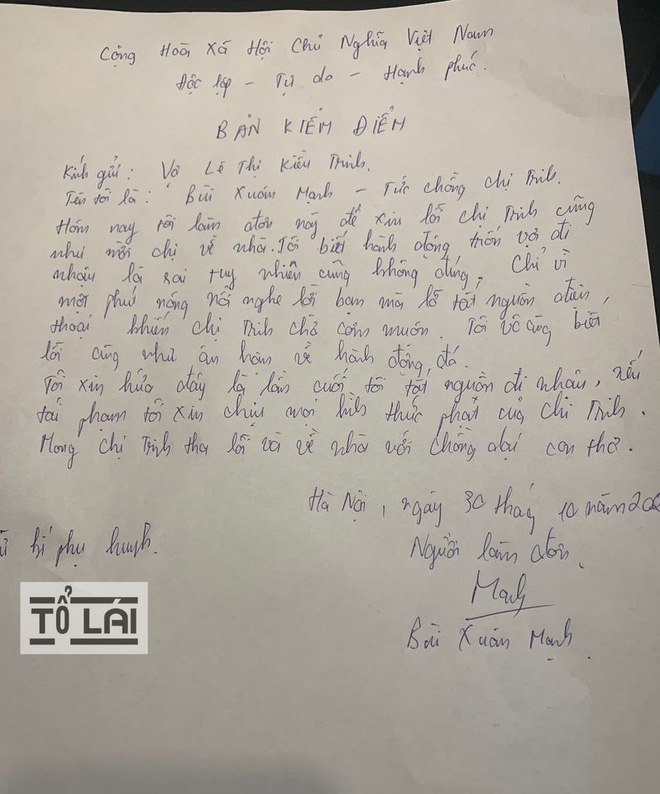 Cộng Hoà Xã Hội Chủ Nghĩa Việt Nam
Độc lập - Tự do - Hạnh phúc.
BẢN KIỂM ĐIỂM
Kính gửi: Vợ Lê Thị Kiều Trinh.
Tên tôi là: Bùi Xuân Mạnh - Tức chồng chị Trinh.
Hôm nay tôi làm đơn này để xin lỗi chị Trinh cũng
như mời chị về nhà. Tôi biết hành động trốn vợ đi
nhậu là sai tuy nhiên cũng không đúng. Chỉ vì
một phút nóng nổi nghe lời bạn mà lỡ tắt nguồn điện
thoại khiến chị Trinh chờ cơm muộn. Tôi vô cùng biết
lỗi cũng như ân hận về hành động đó.
Tôi xin hứa đây là lần cuối tôi tắt nguồn đi nhậu, nếu
tái phạm tôi xin chịu mọi hình thức phạt của chị Trinh.
Mong chị Trinh tha lỗi và về nhà với chồng dại con thơ.
Hà Nội, ngày 30 tháng 10 năm 20
kí phụ huynh.
Người làm đơn
Mạnh
Bùi Xuân Mạnh
TỔ LÁI